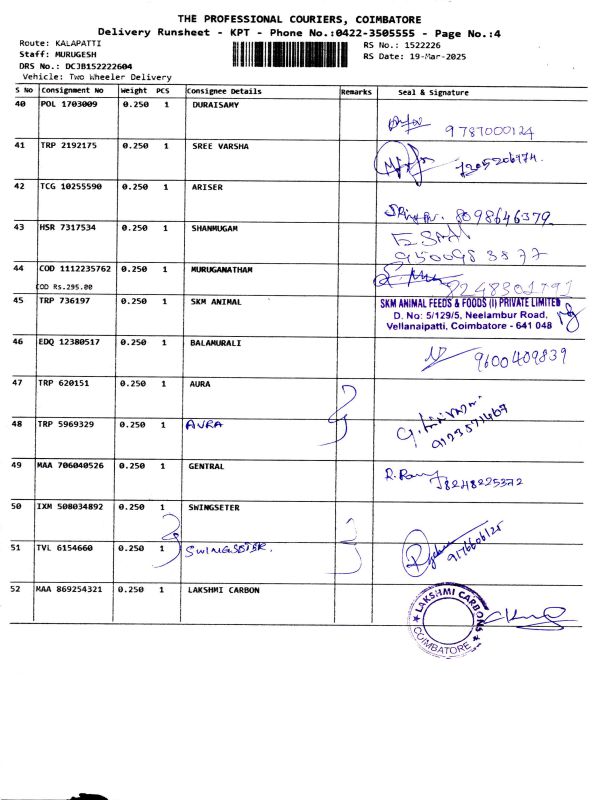 THE PROFESSIONAL COURIERS, COIMBATORE
Delivery Runsheet - KPT - Phone No.:0422-3505555 - Page No.:4
Route: KALAPATTI
Staff: MURUGESH
DRS No.: DCJB152222604
Vehicle: Two Wheeler Delivery
RS No.: 1522226
RS Date: 19-Mar-2025
S No Consignment No Weight PCS Consignee Details Remarks Seal & Signature
40 POL 1703009 0.250 1 DURAISAMY
9787000124
41 TRP 2192175 0.250 1 SREE VARSHA
7205206974
42 TCG 10255590 0.250 1 ARISER
8098646379
43 HSR 7317534 0.250 1 SHANMUGAM
9500983877
44 COD 1112235762 0.250 1 MURUGANATHAM
COD Rs.295.00
8248301791
45 TRP 736197 0.250 1 SKM ANIMAL
SKM ANIMAL FEEDS & FOODS (I) PRIVATE LIMITED
D. No: 5/129/5, Neelambur Road,
Vellanaipatti, Coimbatore - 641 048
46 EDQ 12380517 0.250 1 BALAMURALI
9600409839
47 TRP 620151 0.250 1 AURA
48 TRP 5969329 0.250 1 AURA
9123571467
49 MAA 706040526 0.250 1 GENTRAL
8248225372
50 IXM 508034892 0.250 1 SWINGSETER
51 TVL 6154660 0.250 1 SWINGSETER.
9176606125
52 MAA 869254321 0.250 1 LAKSHMI CARBON
LAKSHMI CARBONS
COIMBATORE